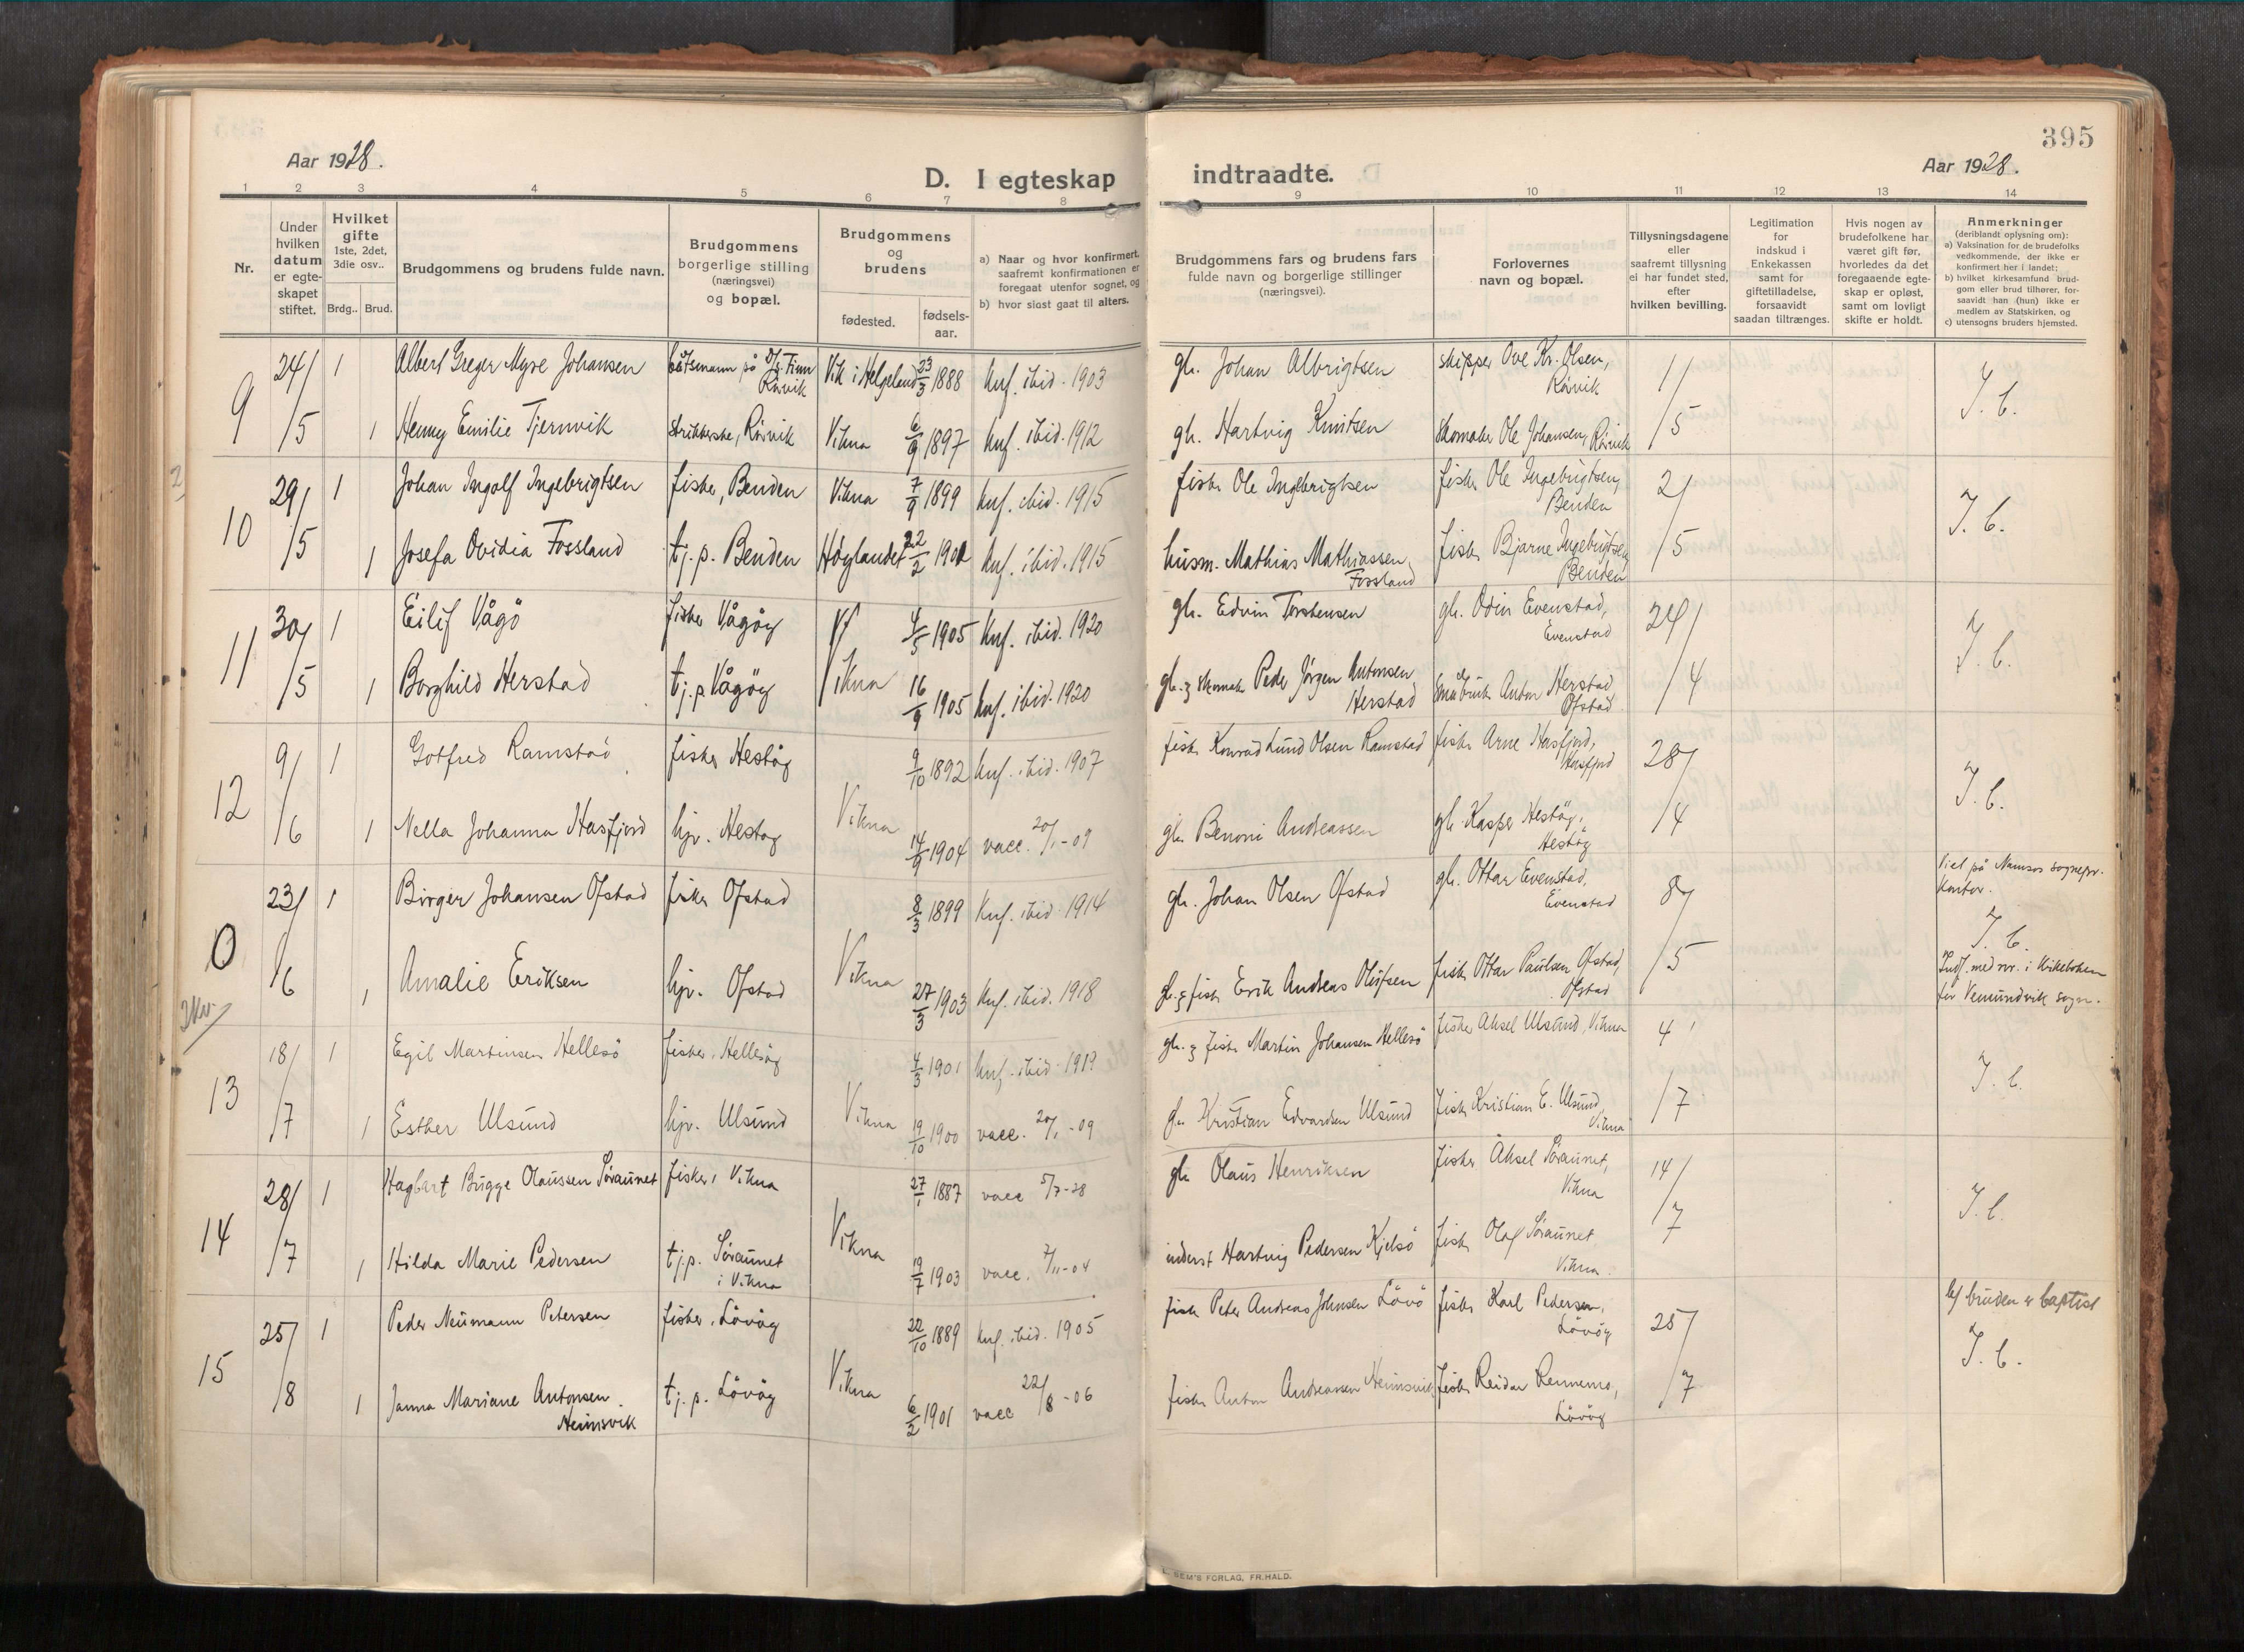 395
Aar 1928.
D. I egteskap
indtraadte.
Aar 1928.
1 2 3 4 5 6 7 8 9 10 11 12 13 14
Nr.
Under hvilken datum er egte-skapet stiftet.
Hvilket gifte 1ste, 2det, 3die osv..
Brdg.. Brud.
Brudgommens og brudens fulde navn.
Brudgommens borgerlige stilling (næringsvei) og bopæl.
Brudgommens og brudens
fødested.
fødsels-aar.
a) Naar og hvor konfirmert, saafremt konfirmationen er foregaat utenfor sognet, og
b) hvor sidst gaat til alters.
Brudgommens fars og brudens fars fulde navn og borgerlige stillinger (næringsvei).
Forlovernes navn og bopæl.
Tillysningsdagene eller saafremt tillysning ei har fundet sted, efter hvilken bevilling.
Legitimation for indskud i Enkekassen samt for giftetilladelse, forsaavidt saadan tiltrænges.
Hvis nogen av brudefolkene har været gift før, hvorledes da det foregaaende egte-skap er opløst, samt om lovligt skifte er holdt.
Anmerkninger (deriblandt oplysning om):
a) Vaksination for de brudefolks vedkommende, der ikke er konfirmert her i landet;
b) hvilket kirkesamfund brud-gom eller brud tilhører, for-saavidt han (hun) ikke er medlem av Statskirken, og
c) utensogns bruders hjemsted.
9 24/5 1 Albert Greger Myre Johansen båtsmann på D/S. Finn Rörvik Vik i Helgeland 23/3 1888 knf. ibid. 1903 gb. Johan Albrigtsen skipper Ove Kr. Olsen, Rörvik 1/5 I. b.
1 Henny Emilie Tjernvik strikkerske, Rörvik Vikna 6/9 1897 knf. ibid. 1912 gb. Hartvig Knutsen Skomaker Ole Johansen, Rörvik
10 29/5 1 Johan Ingolf Ingebrigtsen fisker, Benden Vikna 7/9 1899 knf. ibid. 1915 fisker Ole Ingebrigtsen fisker Ole Ingebrigtsen, Benden 2/5 I. b.
1 Josefa Ovidia Fossland tj. p. Benden Höylandet 22/2 1901 knf. ibid. 1915 husm. Mathias Mathiassen Fossland fisker Bjarne Ingebrigtsen, Benden
11 30/5 1 Eilif Vågö fisker Vågöy Vikna 4/5 1905 knf. ibid. 1920 gb. Edvin Torstensen gb. Odin Evenstad, Evenstad 24/4 I. b.
1 Borghild Herstad tj. p. Vågöy 16/9 1905 knf. ibid. 1920 gb. & skomak. Peder Jörgen Antonsen Herstad småbruk. Anton Herstad Ofstad
12 9/6 1 Gotfred Ramstad fisker Hestöy Vikna 9/10 1892 knf. ibid. 1907 fisk. Konrad Lund Olsen Ramstad fisker Arne Hasfjord, Hasfjord 28/4 I. b.
1 Nella Johanna Hasfjord hjv. Hestöy 14/9 1904 vacc. 20/1-09 gb. Benoni Andreassen gb. Kasper Hestöy, Hestöy
0 23/6 1 Birger Johansen Ofstad fisker Ofstad Vikna 8/3 1899 knf. ibid. 1914 gb. Johan Olsen Ofstad gb. Ottar Evenstad, Evenstad 8/5 Viet på Namsos sognepr. kontor. I. b.
1 Amalie Eriksen hjv. Ofstad 27/3 1903 knf. ibid. 1918 gb. & fisk. Erik Andreas Olufsen fisk. Ottar Paulsen Ofstad, Ofstad Indf. med nr. i kirkeboken for Vemundvik sogn.
13 18/7 1 Egil Martinsen Hellesö fisker, Hellesöy Vikna 4/3 1901 knf. ibid. 1919 gb. & fisk. Martin Johansen Hellesö fisker Aksel Ulsund, Vikna 4/7 I. b.
1 Esther Ulsund hjv. Ulsund 19/10 1900 vacc. 20/1-09 gb. Kristian Edvardsen Ulsund fisk. Kristian E. Ulsund, Vikna
14 28/7 1 Hagbart Bugge Olaussen Söraunet fisker, Vikna Vikna 27/1 1887 vacc 5/7-28 gb. Olaus Henriksen fisker Aksel Söraunet, Vikna 14/7 I. b.
1 Hilda Marie Pedersen tj. p. Söraunet i Vikna 19/7 1903 vacc. 7/11-04 inderst Hartvig Pedersen Kjelsö fisk. Olaf Söraunet Vikna
15 25/8 1 Peder Neumann Petersen fisker, Lövöy Vikna 22/10 1889 knf. ibid. 1905 fisk. Peter Andreas Johnsen Lövö fisker Karl Pedersen, Lövöy 25/7 b/ bruden er baptist I. b.
1 Janna Mariane Antonsen Heimsvik tj. p. Lövöy 6/2 1901 vacc 22/8-06 fisk. Anton Andreassen Heimsvik fisker Reidar Rennemo, Lövöy
SEM'S FORLAG, FR.HALD.